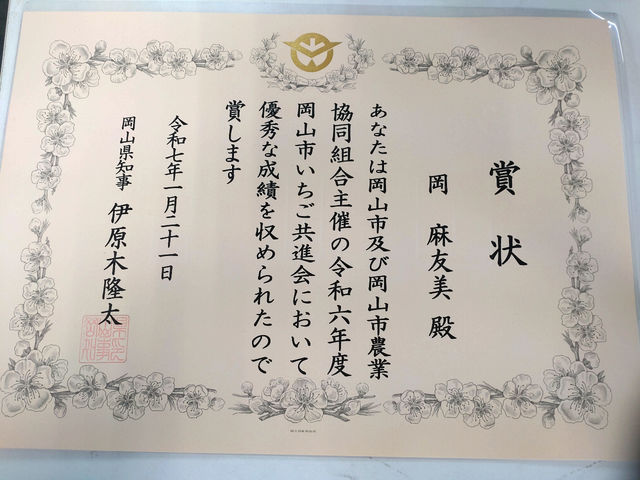 賞状
岡 麻友美 殿
あなたは岡山市及び岡山市農業
協同組合主催の令和六年度
岡山市いちご共進会において
優秀な成績を収められたので
賞します
令和七年一月二十一日
岡山県知事 伊原木隆太